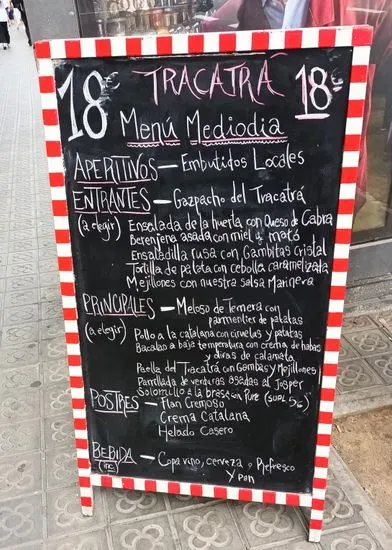 18€ TRACATRÁ 18€
Menú Mediodia
APERITIVOS — Embutidos Locales
ENTRANTES — Gazpacho del Tracatrá
(a elegir) Enselada de la huerta con Queso de Cabra
Berenjena asada con miel y mató
Ensaladilla rusa con Gambitas Cristal
Tortilla de patata con cebolla caramelizada
Mejillones con nuestra salsa Marinera
PRINCIPALES — Meloso de Ternera con
parmentier de patatas
(a elegir) Pollo a la catalana con ciruelas y patatas
Bacalao a baja temperatura con crema de habas
y obras de calamata
Paella del Tracatrá con Gambas y Mejillones
Parrillada de verduras asadas al Josper
Solomillo a la brasa con pure (SUPL 5€)
POSTRES — Flan Cremoso
Crema Catalana
Helado Casero
BEBIDA — Copa vino, cerveza o Refresco
(inc) y pan